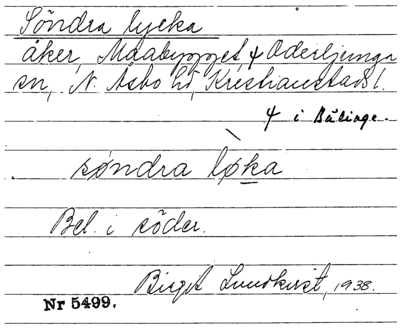 Söndra lycka
åker, Maabygget 4 Oderljunga
sn, N. Åsbo hd, Kristianstads l.
4 i Bälinge.
søndra lø̀ka
Bel. i söder.
Birgit Lundkvist, 1938.
Nr 5499.